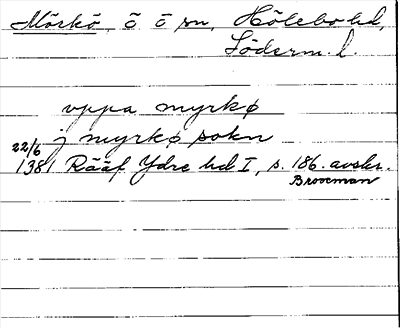 Mörkö, ö o sn, Hölebo hd,
Söderm. l.
uppa myrkø
j myrkø sokn
22/6
1381 Rääf Ydre hd I, s. 186. avskr.
Brooman